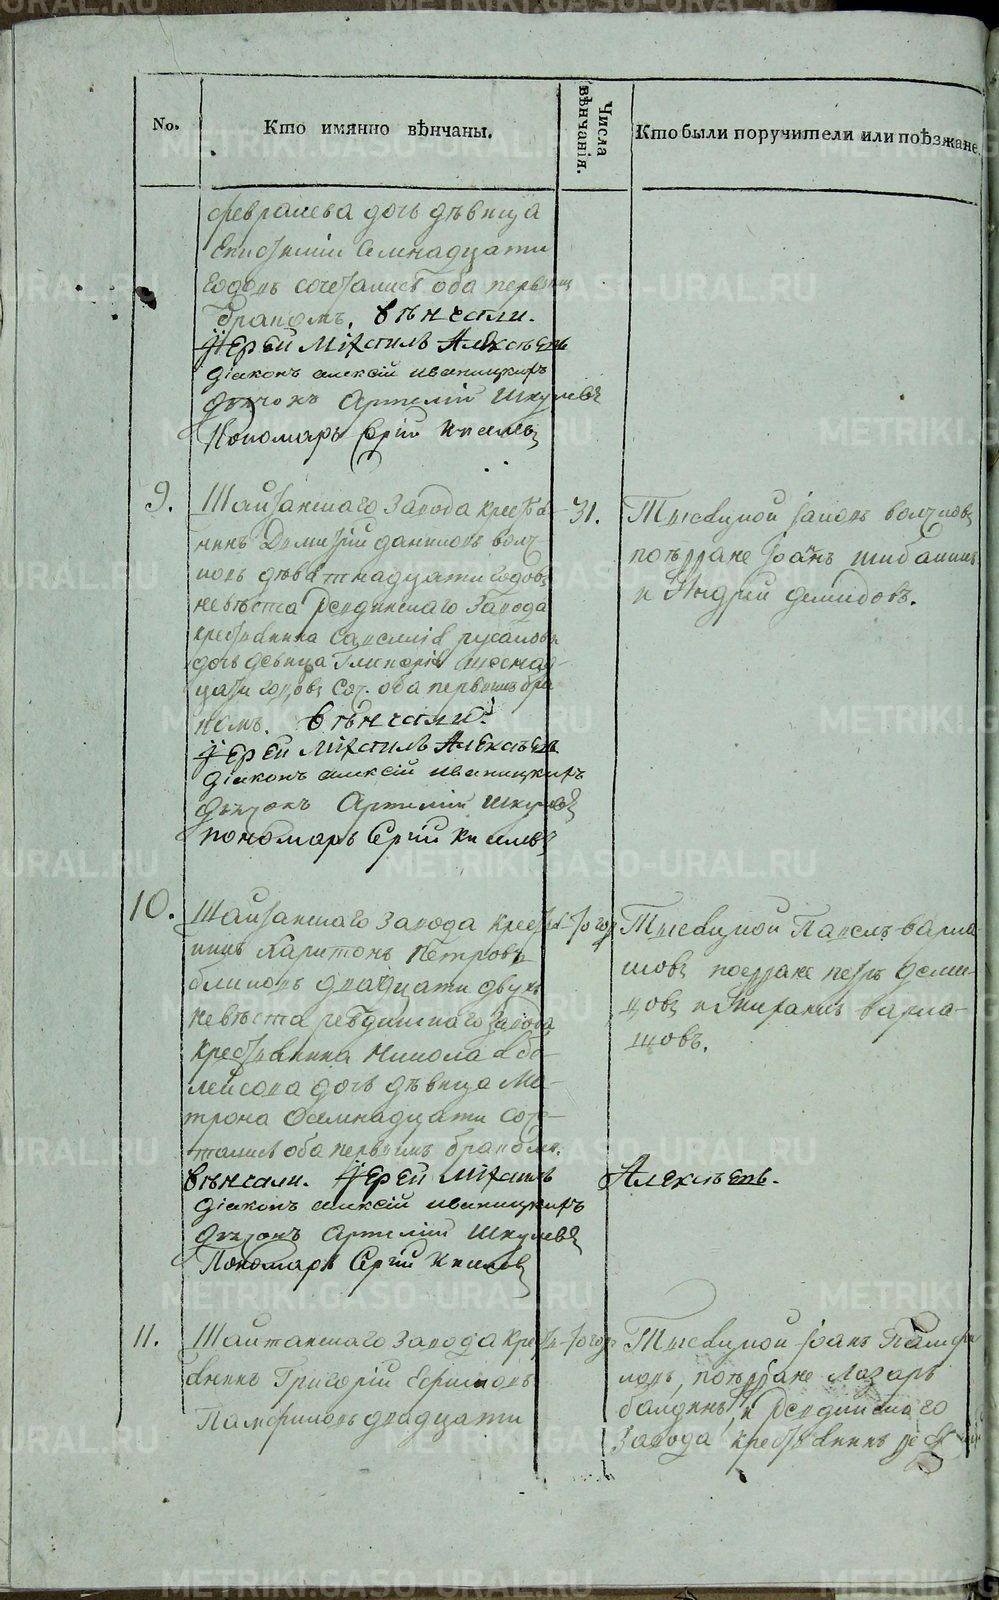 No.
Кто имянно вѣнчаны.
Числа вѣнчанія.
Кто были поручители или поѣзжане.
февралева дочь дѣвица
семнадцати
годовъ сочетались оба первымъ
бракомъ. вѣнчали.
Іерей Михаилъ Алексѣевъ
діаконъ алексій иваницкихъ
дьячокъ Артемій Шкулевъ
Пономарь Сергій Киселевъ
9.
Шайтанскаго Завода крестья-
нинъ Димитрій даниловъ волч-
ковъ девятнадцати годовъ
невѣста Ревдинскаго Завода
крестьянина Савелія русакова
дочь девица Гликерія шеснад-
цати годовъ соч. оба первымъ бра-
комъ. вѣнчали.
Іерей Михаилъ Алексѣевъ
діаконъ алексій иваницкихъ
дьячокъ Артемій Шкулевъ
пономарь Сергій Киселевъ
31.
Тысяцкой
поѣзжане Іоанъ шибакинъ
и Андрей демидовъ.
10.
Шайтанскаго Завода кресть-
нинъ Харитонъ Петровъ
блиновъ двадцати двухъ
невѣста ревдинскаго Завода
крестьянина Никола
дочь дѣвица Ма-
трона Осемнадцати соче-
тались оба первымъ бракомъ.
вѣнчали. Іерей Михаилъ
Алексѣевъ.
діаконъ алексій иваницкихъ
дьячокъ Артемій Шкулевъ
Пономарь Сергій Киселевъ
-го го
Тысяцкой Павелъ варла-
шовъ поезжане петръ деми-
довъ и варла-
шовъ.
11.
Шайтанскаго Завода кресть-
янинъ Григорій Ефимовъ
Памфиловъ двадцати
-го го
Тысяцкой Іоанъ Памфи-
ловъ, поѣзжане Лазарь
балдинъ, и Ревдинскаго
Завода крестьянинъ